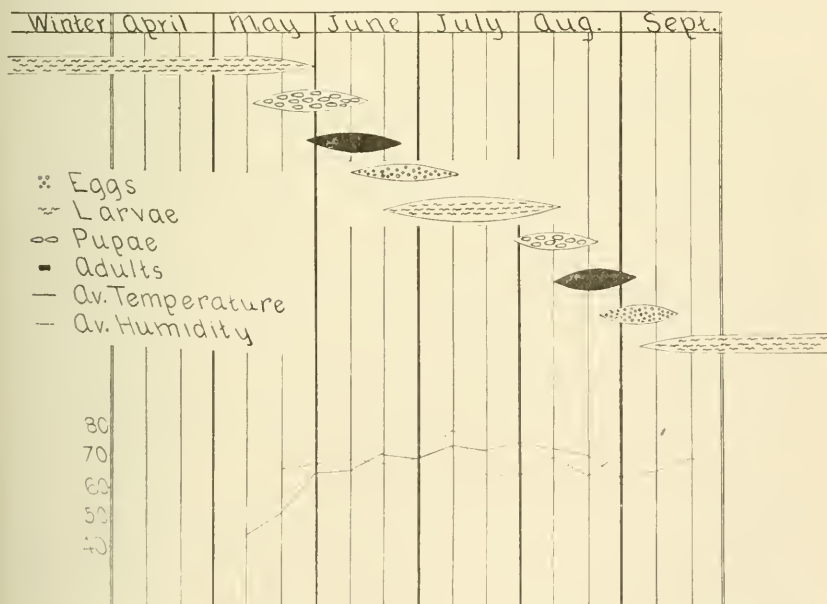 Winter April May June July Aug. Sept.
Eggs
Larvae
Pupae
Adults
Av. Temperature
Av. Humidity
80
70
60
50
40